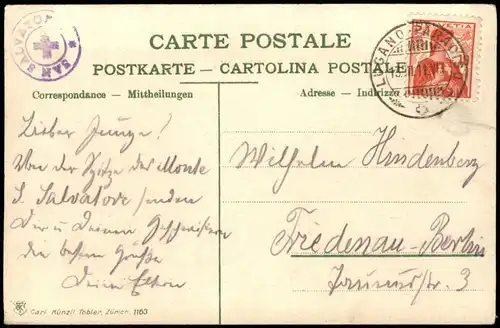 SAN SALVATORE
CARTE POSTALE
POSTKARTE – CARTOLINA POSTALE
LUGANO-PARADISO
HELVETIA
Correspondance - Mittheilungen
Adresse - Indirizzo
Lieber Junge!
Von der Spitze des Monte
S. Salvatore senden
Dir u Deinen Geschwistern
die besten Grüße
Deine Eltern
Wilhelm Hindenberg
Friedenau-Berlin
Taunusstr. 3
Carl Künzli Tobler, Zürich, 1160